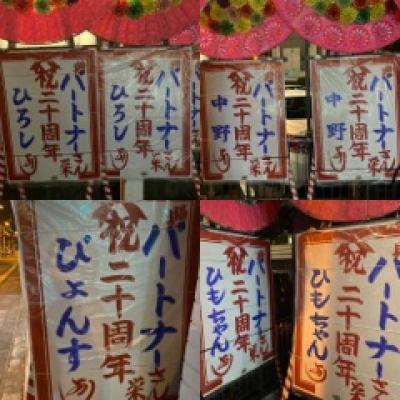 パートナーさん
祝二十周年
ひろし
パートナーさん
祝二十周年
ひろし
パートナーさん
祝二十周年
中野
パートナーさん
祝二十周年
中野
パートナーさん
祝二十周年
ぴょんす
パートナーさん
祝二十周年
ひもちゃん
パートナーさん
祝二十周年
ひもちゃん